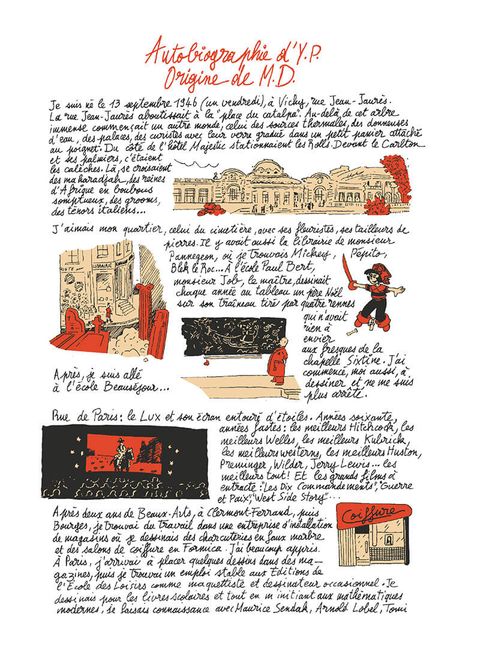 Autobiographie d'Y.P.
Origine de M.D.
Je suis né le 13 septembre 1946 (un vendredi), à Vichy, rue Jean-Jaurès.
La rue Jean-Jaurès aboutissait à la "place du catalpa". Au-delà de cet arbre
immense commençait un autre monde, celui des sources thermales, des donneuses
d'eau, des palaces, des curistes avec leur verre gradué dans un petit panier attaché
au poignet. Du côté de l'hôtel Majestic stationnaient les Rolls. Devant le Carlton
et ses palmiers, c'étaient
les calèches. Là, se croisaient
des maharadjahs, des reines
d'Afrique en boubous
somptueux, des grooms,
des ténors italiens...
J'aimais mon quartier, celui du cimetière, avec ses fleuristes, ses tailleurs de
pierres. Il y avait aussi la librairie de monsieur
Pannegeon, où je trouvais Mickey, Pépito,
Blek le Roc... A l'école Paul Bert,
monsieur Job, le maître, dessinait
chaque année au tableau un père Noël
sur son traîneau tiré par quatre rennes
qui n'avait
rien à
envier
aux fresques de la
chapelle Sixtine. J'ai
commencé, moi aussi, à
dessiner et ne me suis
plus arrêté.
Après, je suis allé
à l'école Beauséjour...
Rue de Paris : le Lux et son écran entouré d'étoiles. Années soixante,
années fastes : les meilleurs Hitchcock, les
meilleurs Welles, les meilleurs Kubrick,
les meilleurs westerns, les meilleurs Huston,
Preminger, Wilder, Jerry Lewis... les
meilleurs tout ! Et les grands films à
entracte : "Les Dix Commandements", "Guerre
et Paix", "West Side Story"...
Après deux ans de Beaux-Arts, à Clermont-Ferrand, puis
Bourges, je trouvai du travail dans une entreprise d'installation
de magasins où je dessinais des charcuteries en faux marbre
et des salons de coiffure en Formica. J'ai beaucoup appris.
A Paris, j'arrivai à placer quelques dessins dans des ma-
gazines, puis je trouvai un emploi stable aux Editions de
l'Ecole des Loisirs comme maquettiste et dessinateur occasionnel. Je
dessinais pour les livres scolaires et tout en m'initiant aux mathématiques
modernes, je faisais connaissance avec Maurice Sendak, Arnold Lobel, Tomi
Coiffure